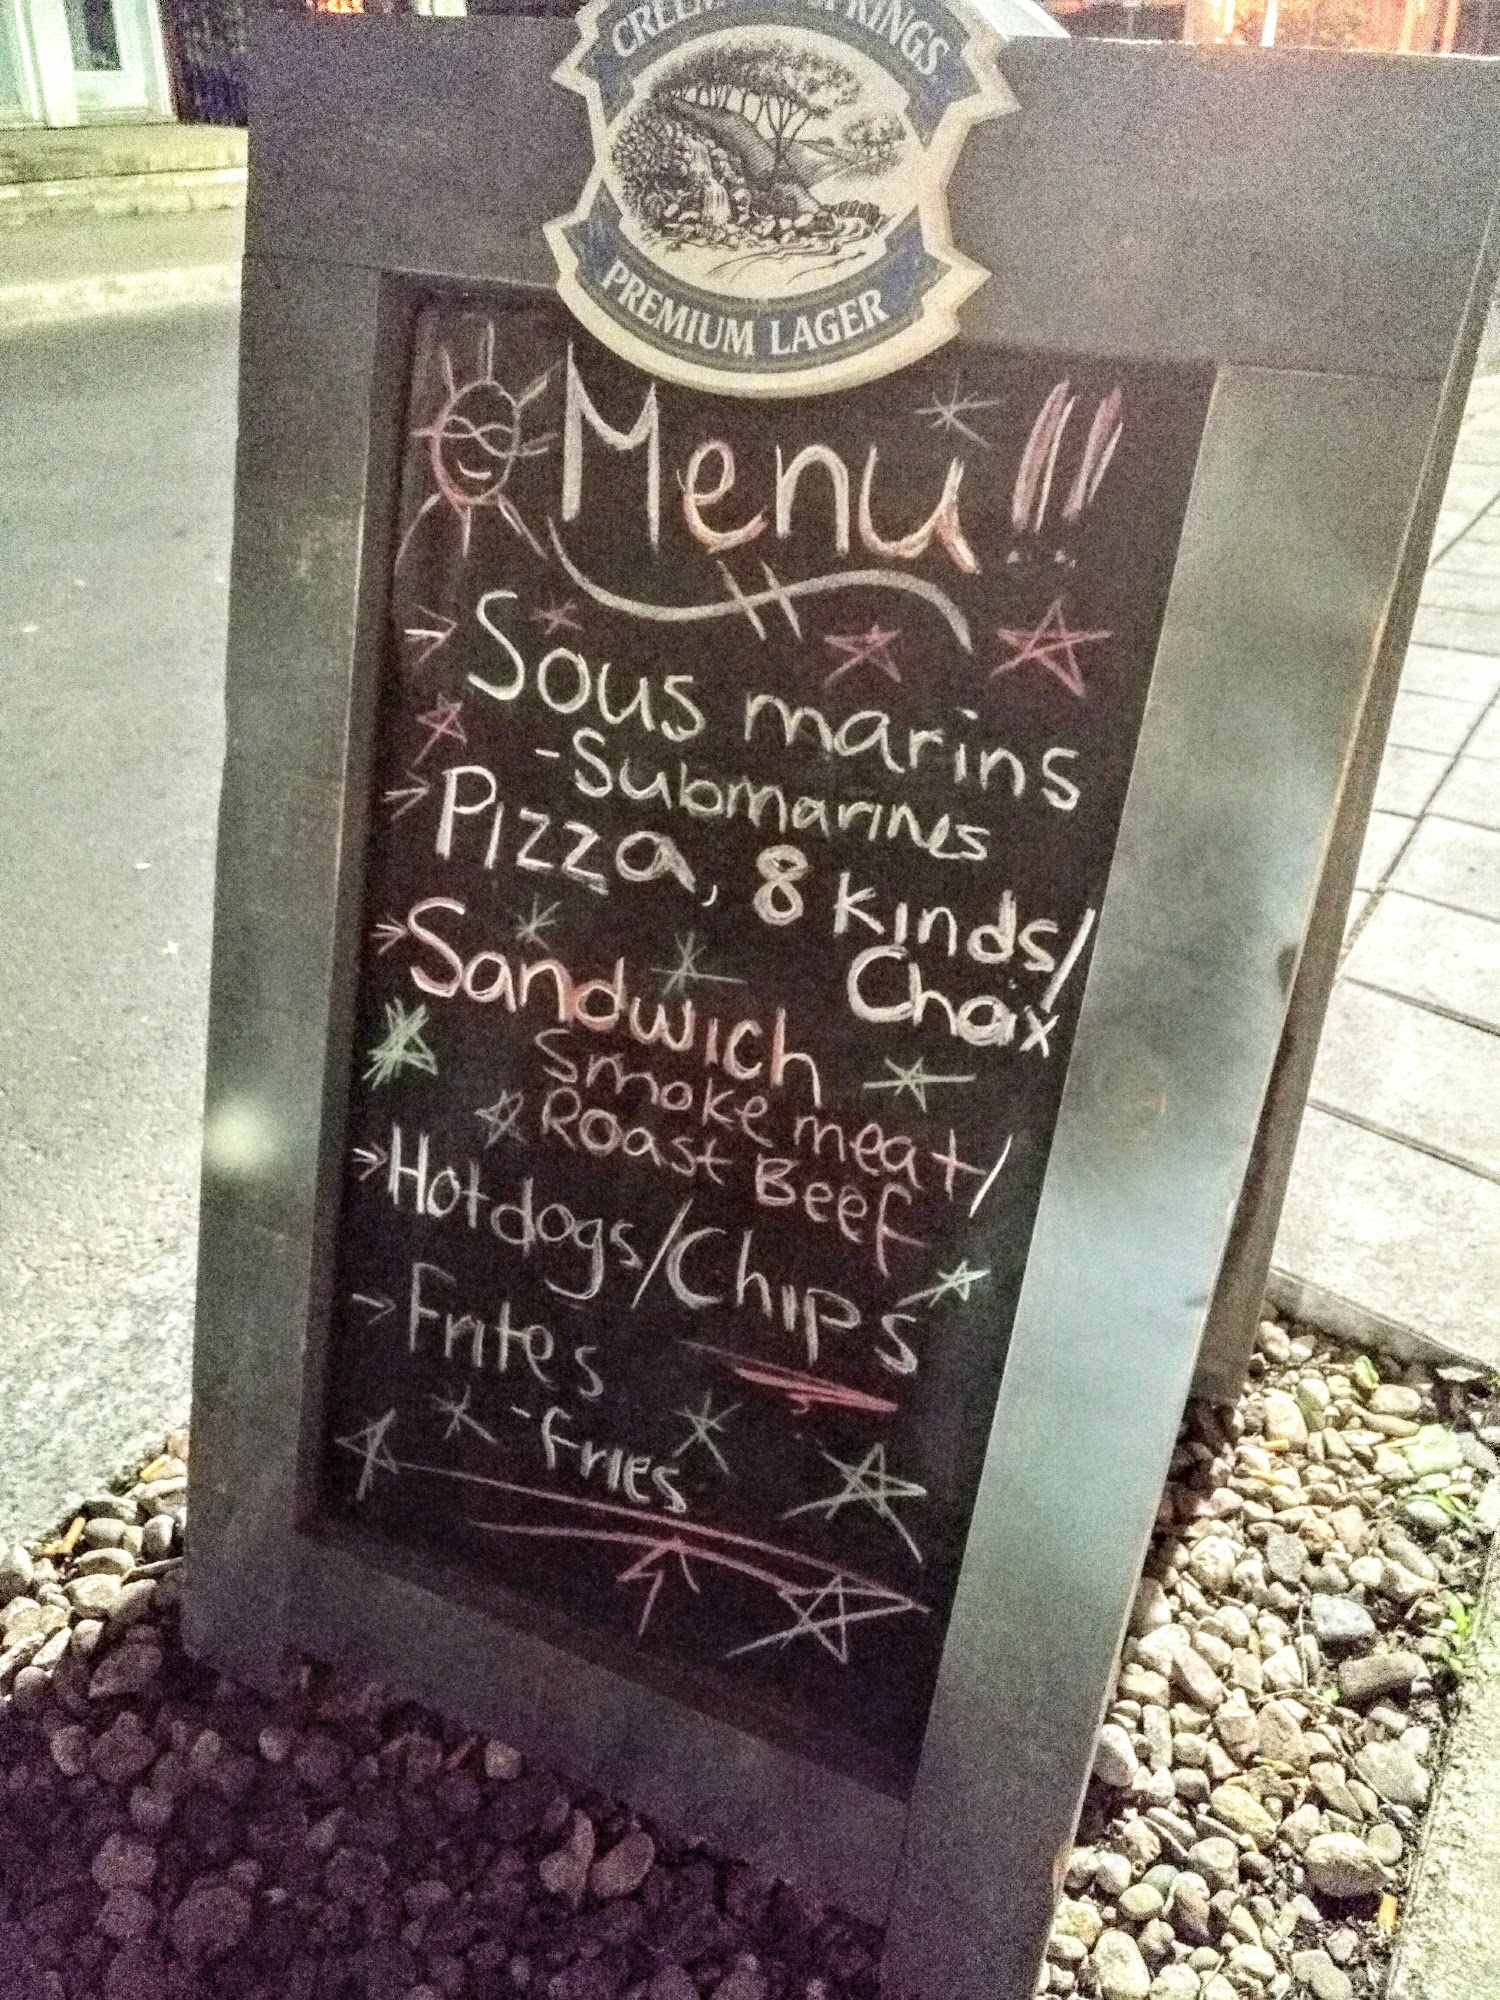 CREEMORE SPRINGS
PREMIUM LAGER
Menu!!
→ Sous marins
-Submarines
→ Pizza, 8 kinds/
Choix
→ Sandwich
Smoke meat/
Roast Beef
→ Hotdogs/Chips
→ Frites
-fries